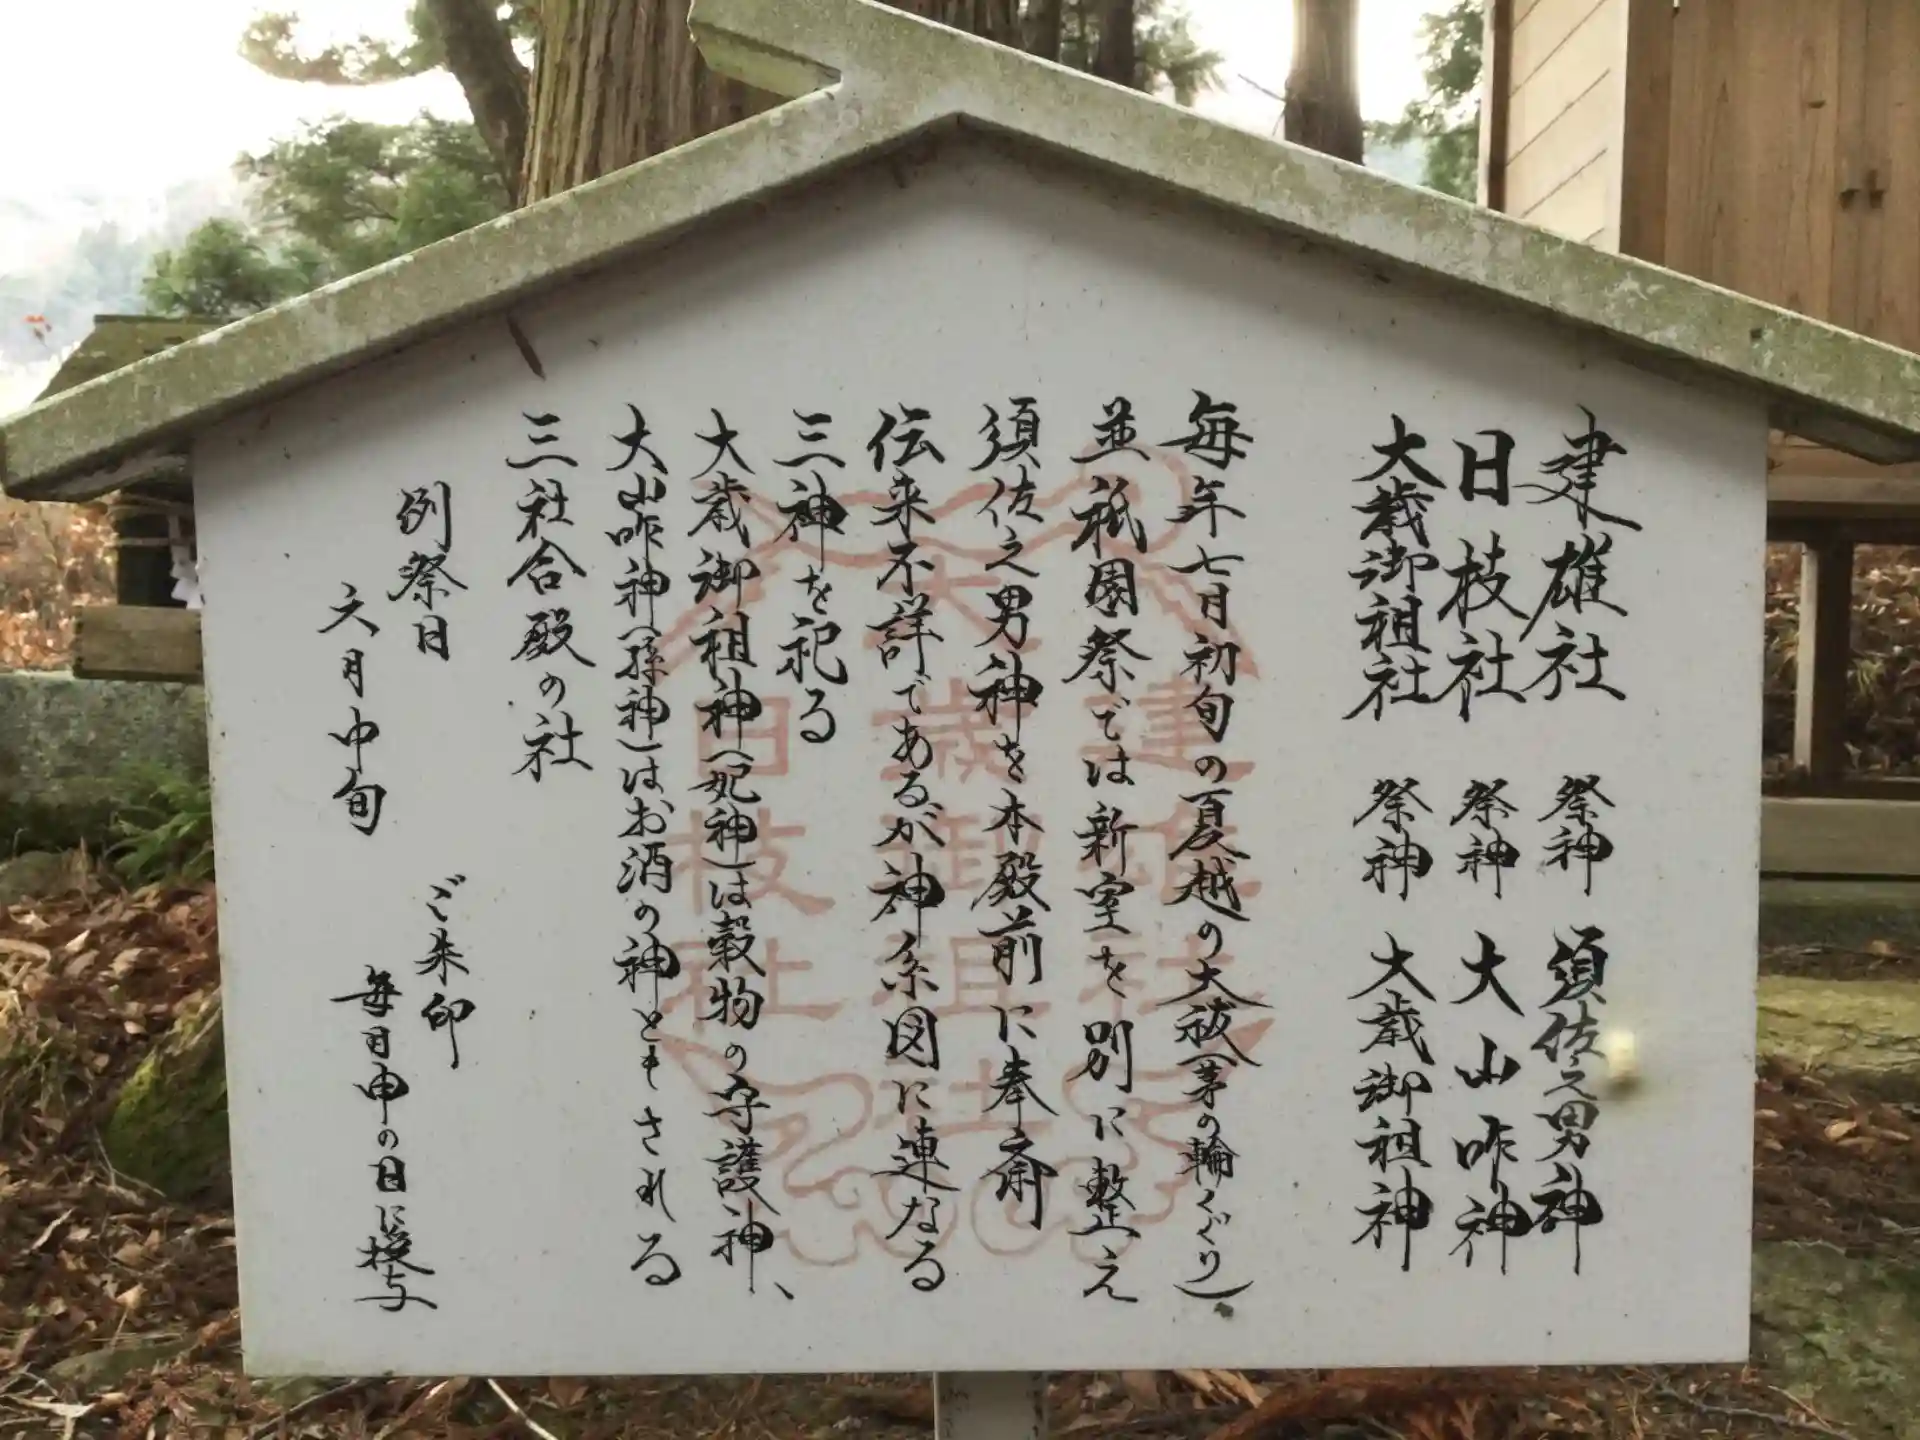 建雄社 祭神 須佐之男神
日枝社 祭神 大山咋神
大歳御祖社 祭神 大歳御祖神
毎年七月初旬の夏越の大祓(茅の輪くぐり)
並祇園祭では新室を別に整え
須佐之男神を本殿前に奉斎
伝来不詳であるが神系図に連なる
三神を祀る
大歳御祖神(妃神)は穀物の守護神、
大山咋神(孫神)はお酒の神ともされる
三社合殿の社
例祭日
六月中旬
ご朱印
毎日申の日に授与
建雄社
大歳御祖社
日枝社